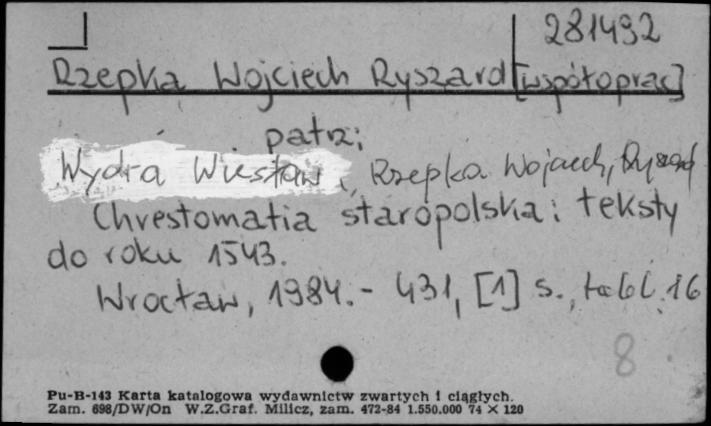 281492
Rzepka Wojciech Ryszard [współoprac]
patrz:
Wydra Wiesław, Rzepka Wojciech, Ryszard
Chrestomatia staropolska: teksty
do roku 1543.
Wrocław, 1984.- 431, [1] s., tabl. 16
8
Pu-B-143 Karta katalogowa wydawnictw zwartych i ciągłych.
Zam. 698/DW/On W.Z.Graf. Milicz, zam. 472-84 1.550.000 74 × 120